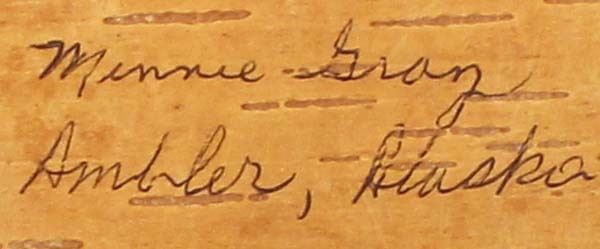 Minnie Gray
Ambler, Alaska